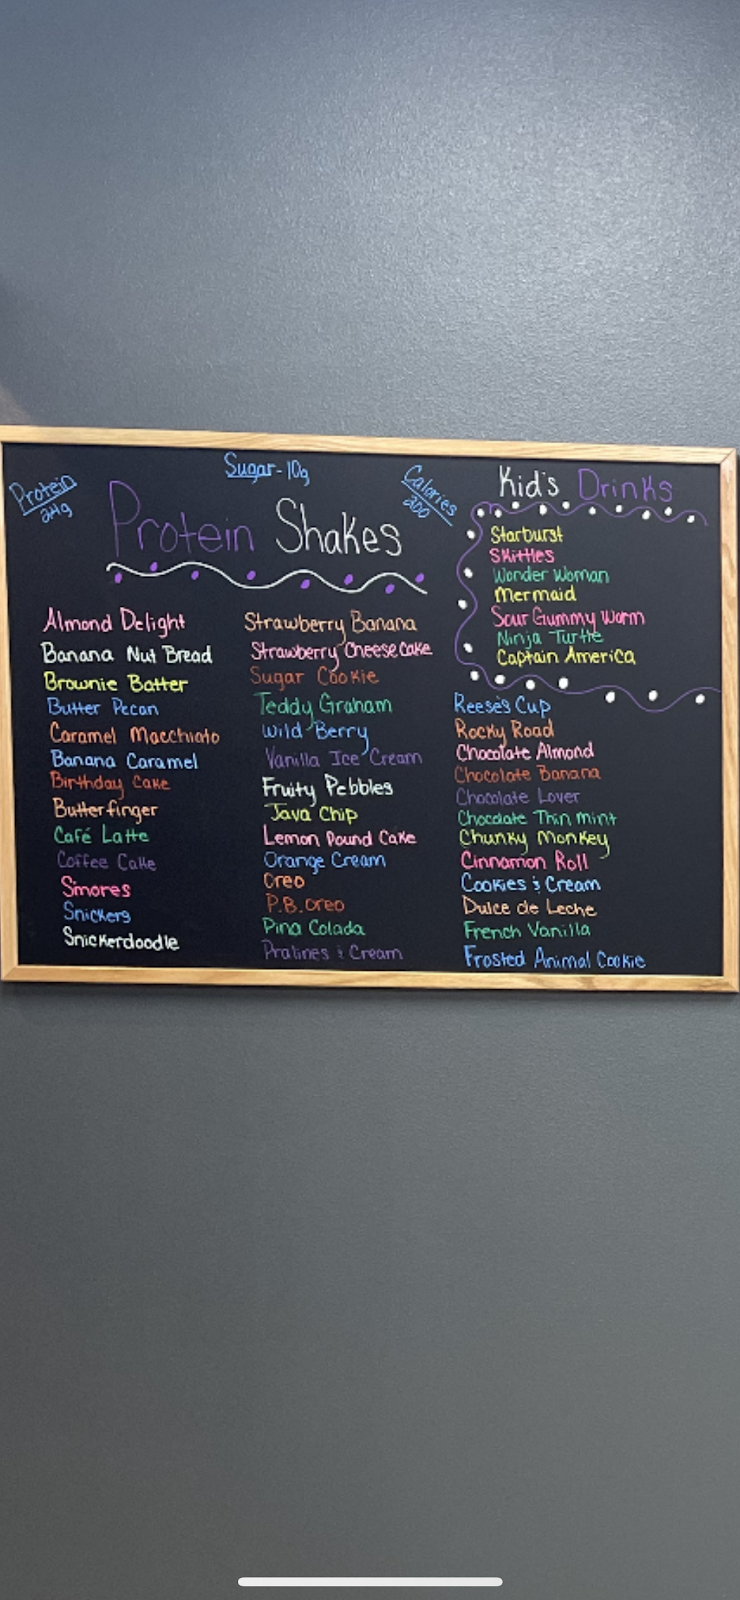 Protein
24g
Sugar-10g
Calories
200
Protein Shakes
Almond Delight
Banana Nut Bread
Brownie Batter
Butter Pecan
Caramel Macchiato
Banana Caramel
Birthday Cake
Butterfinger
Café Latte
Coffee Cake
S'mores
Snickers
Snickerdoodle
Strawberry Banana
Strawberry Cheesecake
Sugar Cookie
Teddy Graham
Wild Berry
Vanilla Ice Cream
Fruity Pebbles
Java Chip
Lemon Pound Cake
Orange Cream
Oreo
P.B. Oreo
Pina Colada
Pralines & Cream
Kid's Drinks
Starburst
Skittles
Wonder Woman
Mermaid
Sour Gummy Worm
Ninja Turtle
Captain America
Reese's Cup
Rocky Road
Chocolate Almond
Chocolate Banana
Chocolate Lover
Chocolate Thin mint
Chunky Monkey
Cinnamon Roll
Cookies & Cream
Dulce de Leche
French Vanilla
Frosted Animal Cookie